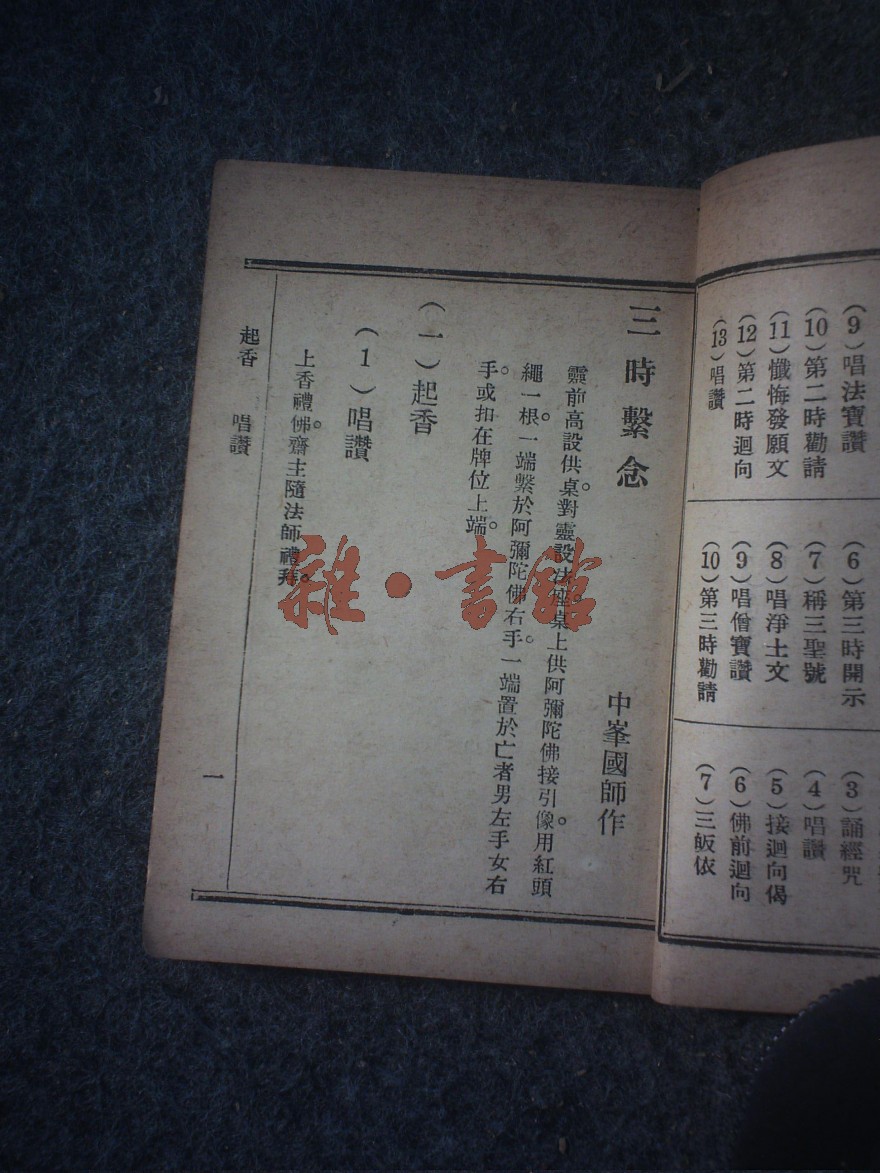 (9)唱法寶讚
(10)第二時勸請
(11)懺悔發願文
(12)第二時迴向
(13)唱讚
(6)第三時開示
(7)稱三聖號
(8)唱淨土文
(9)唱僧寶讚
(10)第三時勸請
(3)誦經咒
(4)唱讚
(5)接迴向偈
(6)佛前迴向
(7)三皈依
三時繫念
中峯國師作
靈前高設供桌。對靈設法座。桌上供阿彌陀佛接引像。用紅頭
繩一根。一端繫於阿彌陀佛右手。一端置於亡者男左手女右
手。或扣在牌位上端。
(一)起香
(1)唱讚
上香禮佛。齋主隨法師禮拜。
起香 唱讚
一
雜·書館